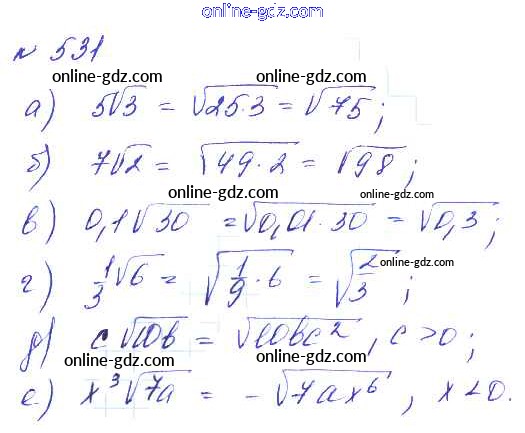 online-gdz.com
№ 531
online-gdz.com online-gdz.com
а) 5√3 = √25·3 = √75;
б) 7√2 = √49·2 = √98;
online-gdz.com online-gdz.com
в) 0,1√30 = √0,01·30 = √0,3;
г) 1/3√6 = √1/9·6 = √2/3;
online-gdz.com
online-gdz.com
д) c√10b = √10bc², c>0;
online-gdz.com online-gdz.com
е) x³√7a = -√7ax⁶, x<0.
online-gdz.com